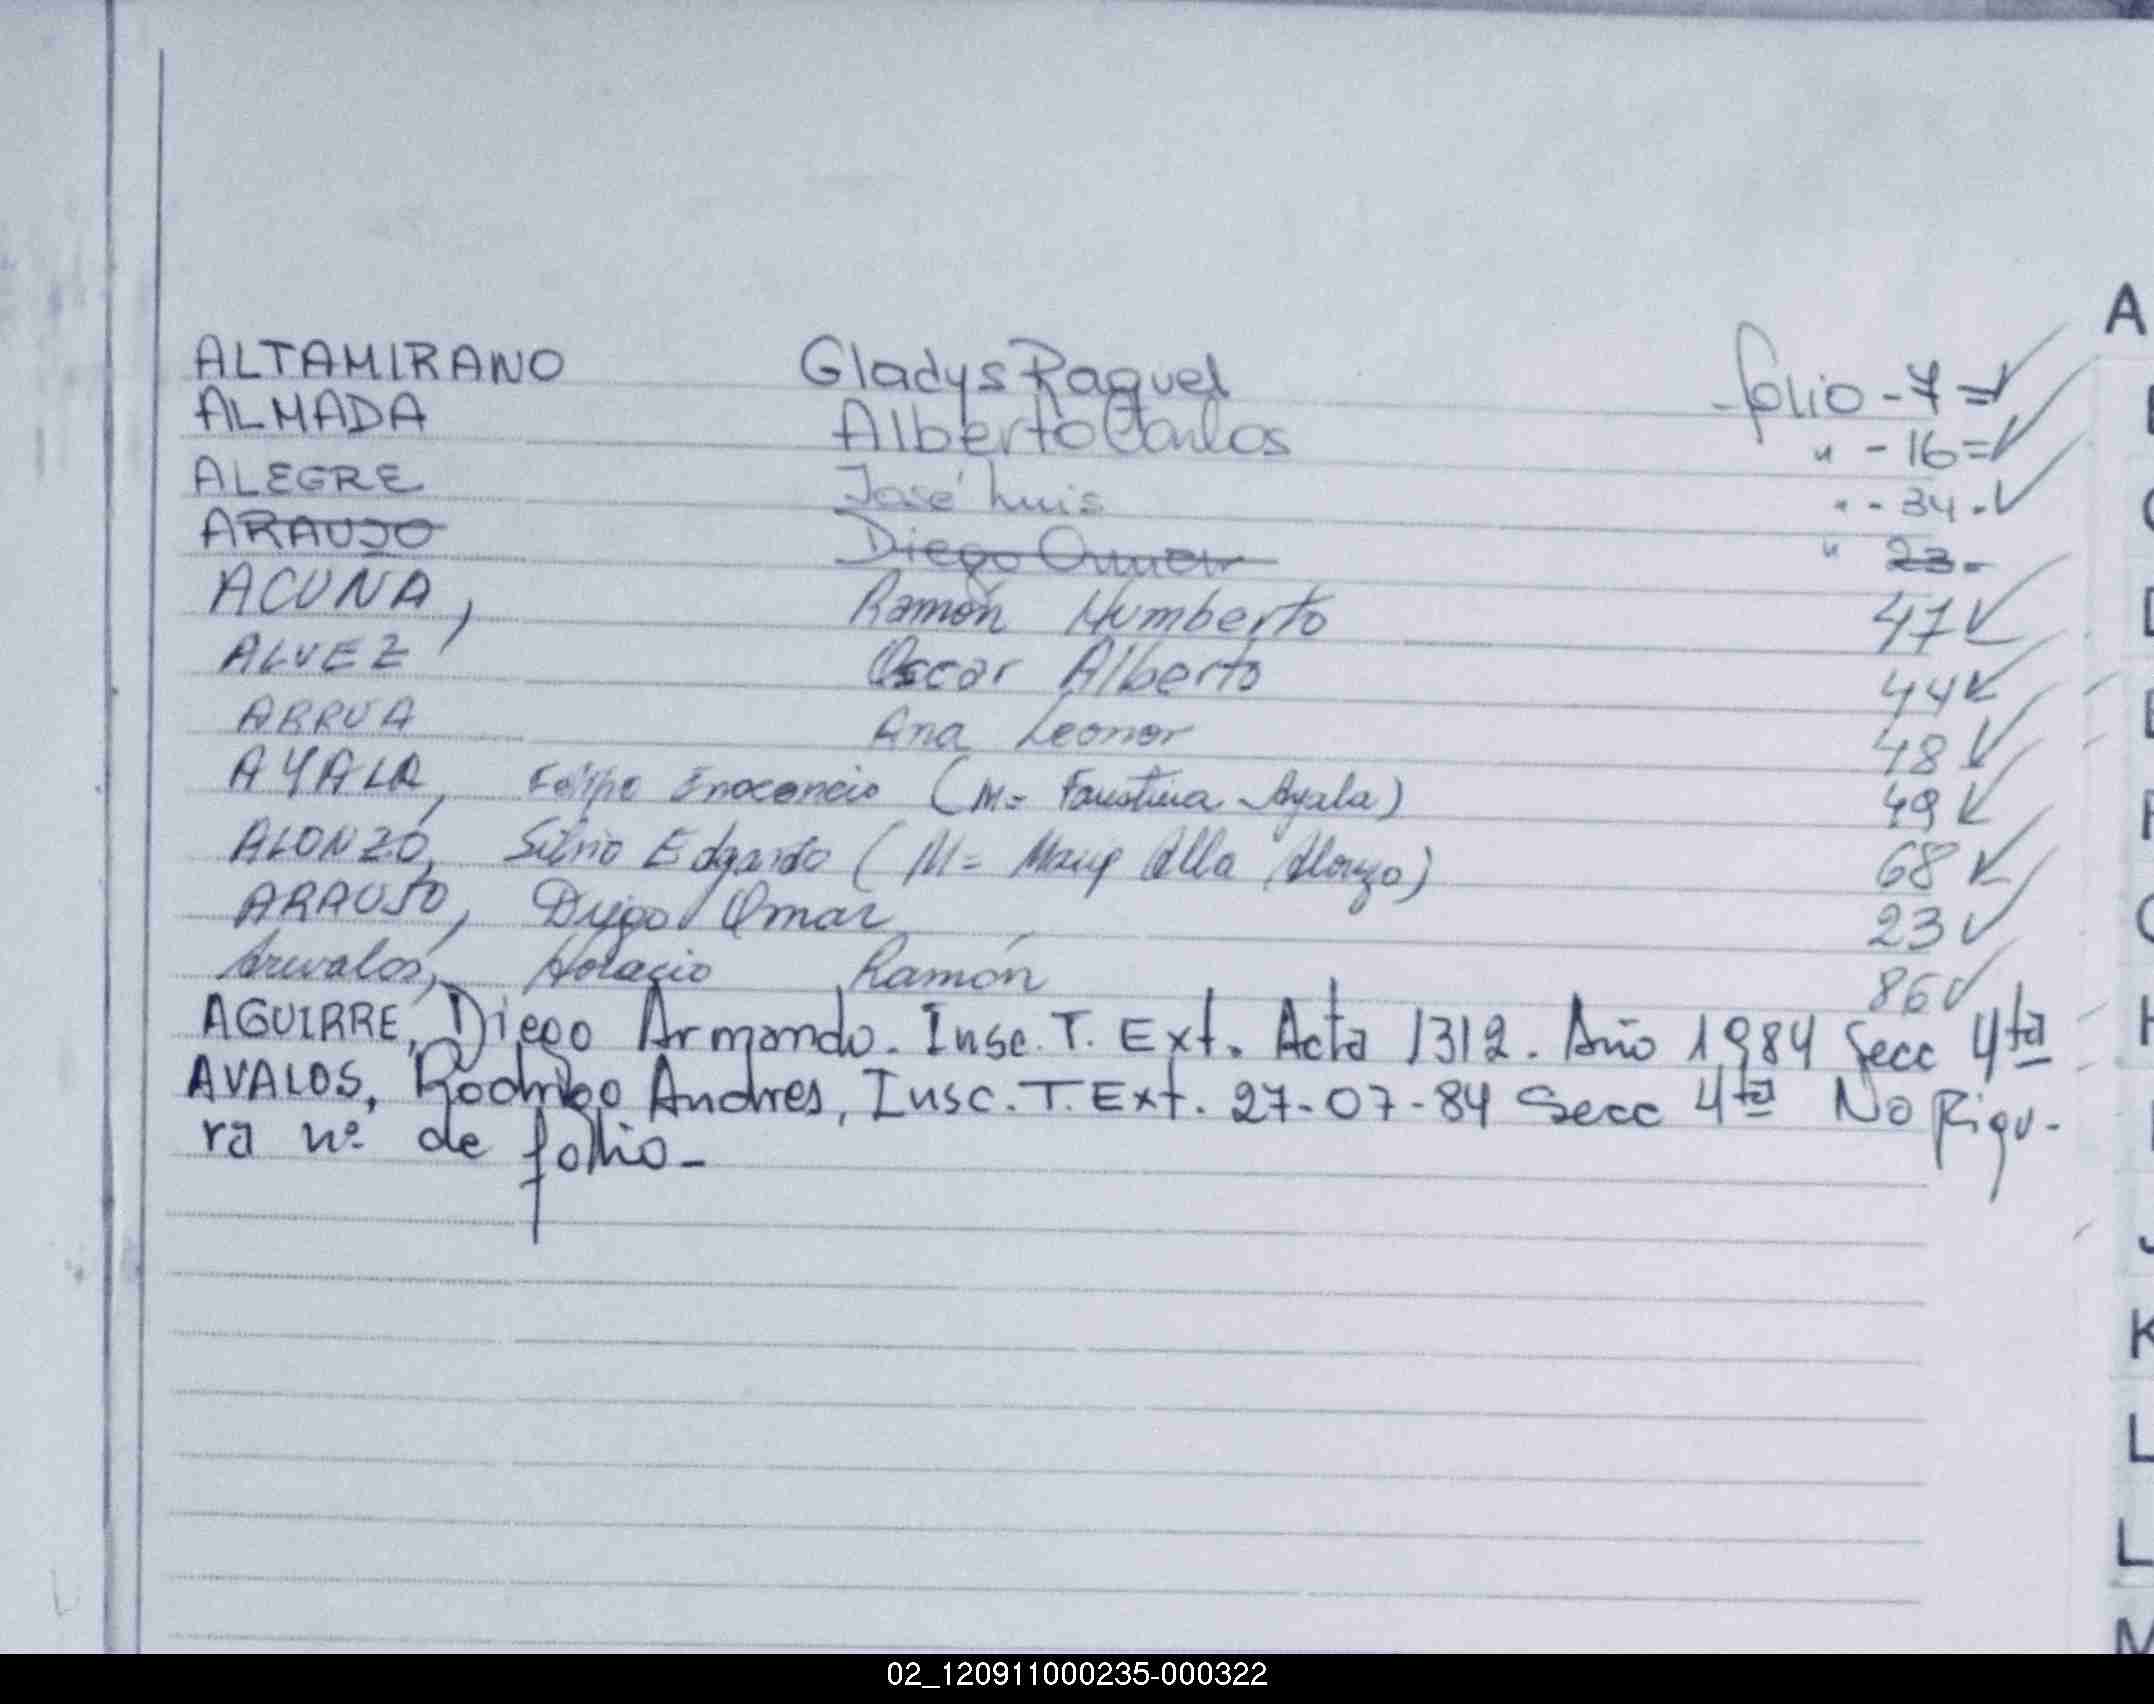 ALTAMIRANO Gladys Raquel folio - 7 =
ALMADA Alberto Carlos " - 16 =
ALEGRE José Luis " - 34 .
ARAUJO Diego Omar " 23 -
ACUNA, Ramón Humberto 47
ALVEZ Oscar Alberto 44
ARRUA Ana Leonor 48
AYALA, Felipe Enocencio (M= Faustina Ayala) 49
ALONZO, Silvio Edgardo (M= Alonzo) 68
ARAUJO, Diego Omar 23
Arevalos, Horacio Ramón 86
AGUIRRE, Diego Armando. Insc. T. Ext. Acta 1312. Año 1984 Secc 4ta
AVALOS, Rodrigo Andres, Insc. T. Ext. 27-07-84 Secc 4ta No Figu-
ra nº de folio -
A
K
L
L
M
02_120911000235-000322